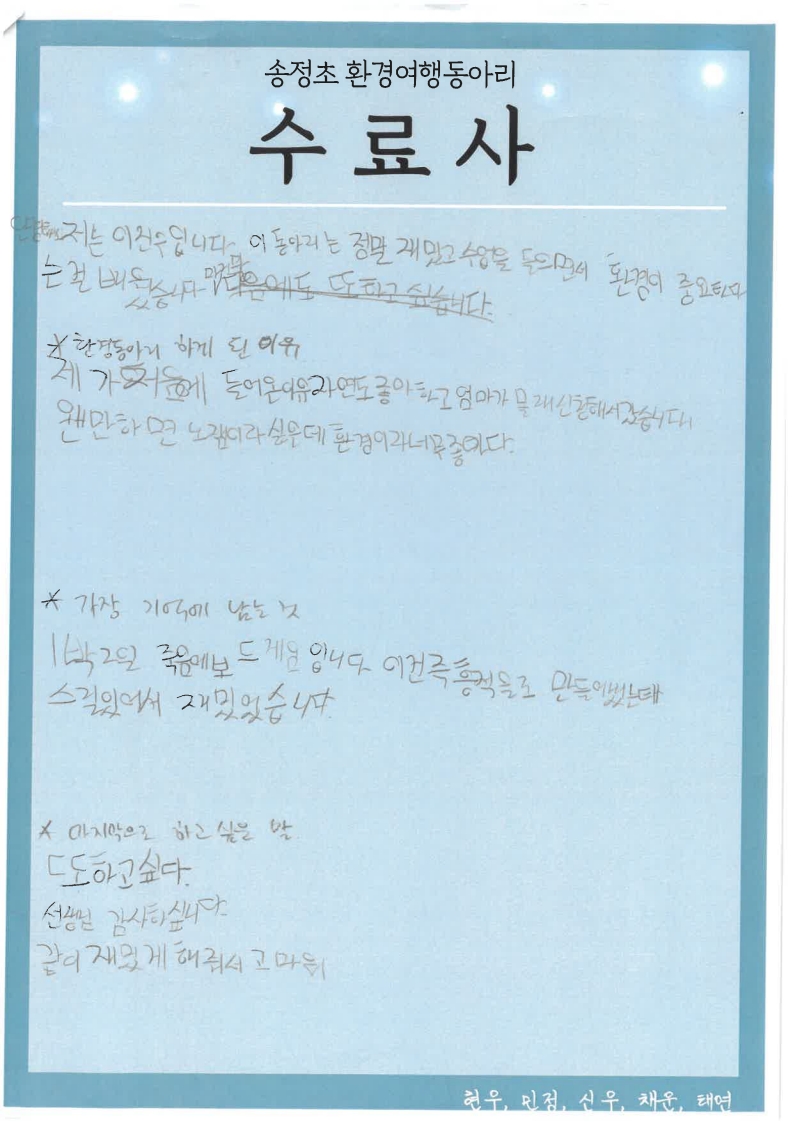 송정초 환경여행동아리
수료사
안녕하세요 저는 이진우입니다. 이 동아리는 정말 재밌고 수업을 들으면서 환경이 중요하다
는걸 배웠습니다 다음에도 또하고 싶습니다.
* 환경동아리 하게 된 이유
제가 처음에 들어온이유 자연도좋아하고 엄마가 몰래신청해서갔습니다
왠만하면 노잼이라싫은데 환경이라너무좋았다.
* 가장 기억에 남는 것
1박2일 죽음에보드게임 입니다 이건즉흥적을로 만들어봤는데
스릴있어서 재밌었습니다.
* 마지막으로 하고 싶은 말
또하고싶다.
선생님 감사하십니다.
같이 재밌게 해줘서 고마워
현우, 민점, 신우, 채운, 태연